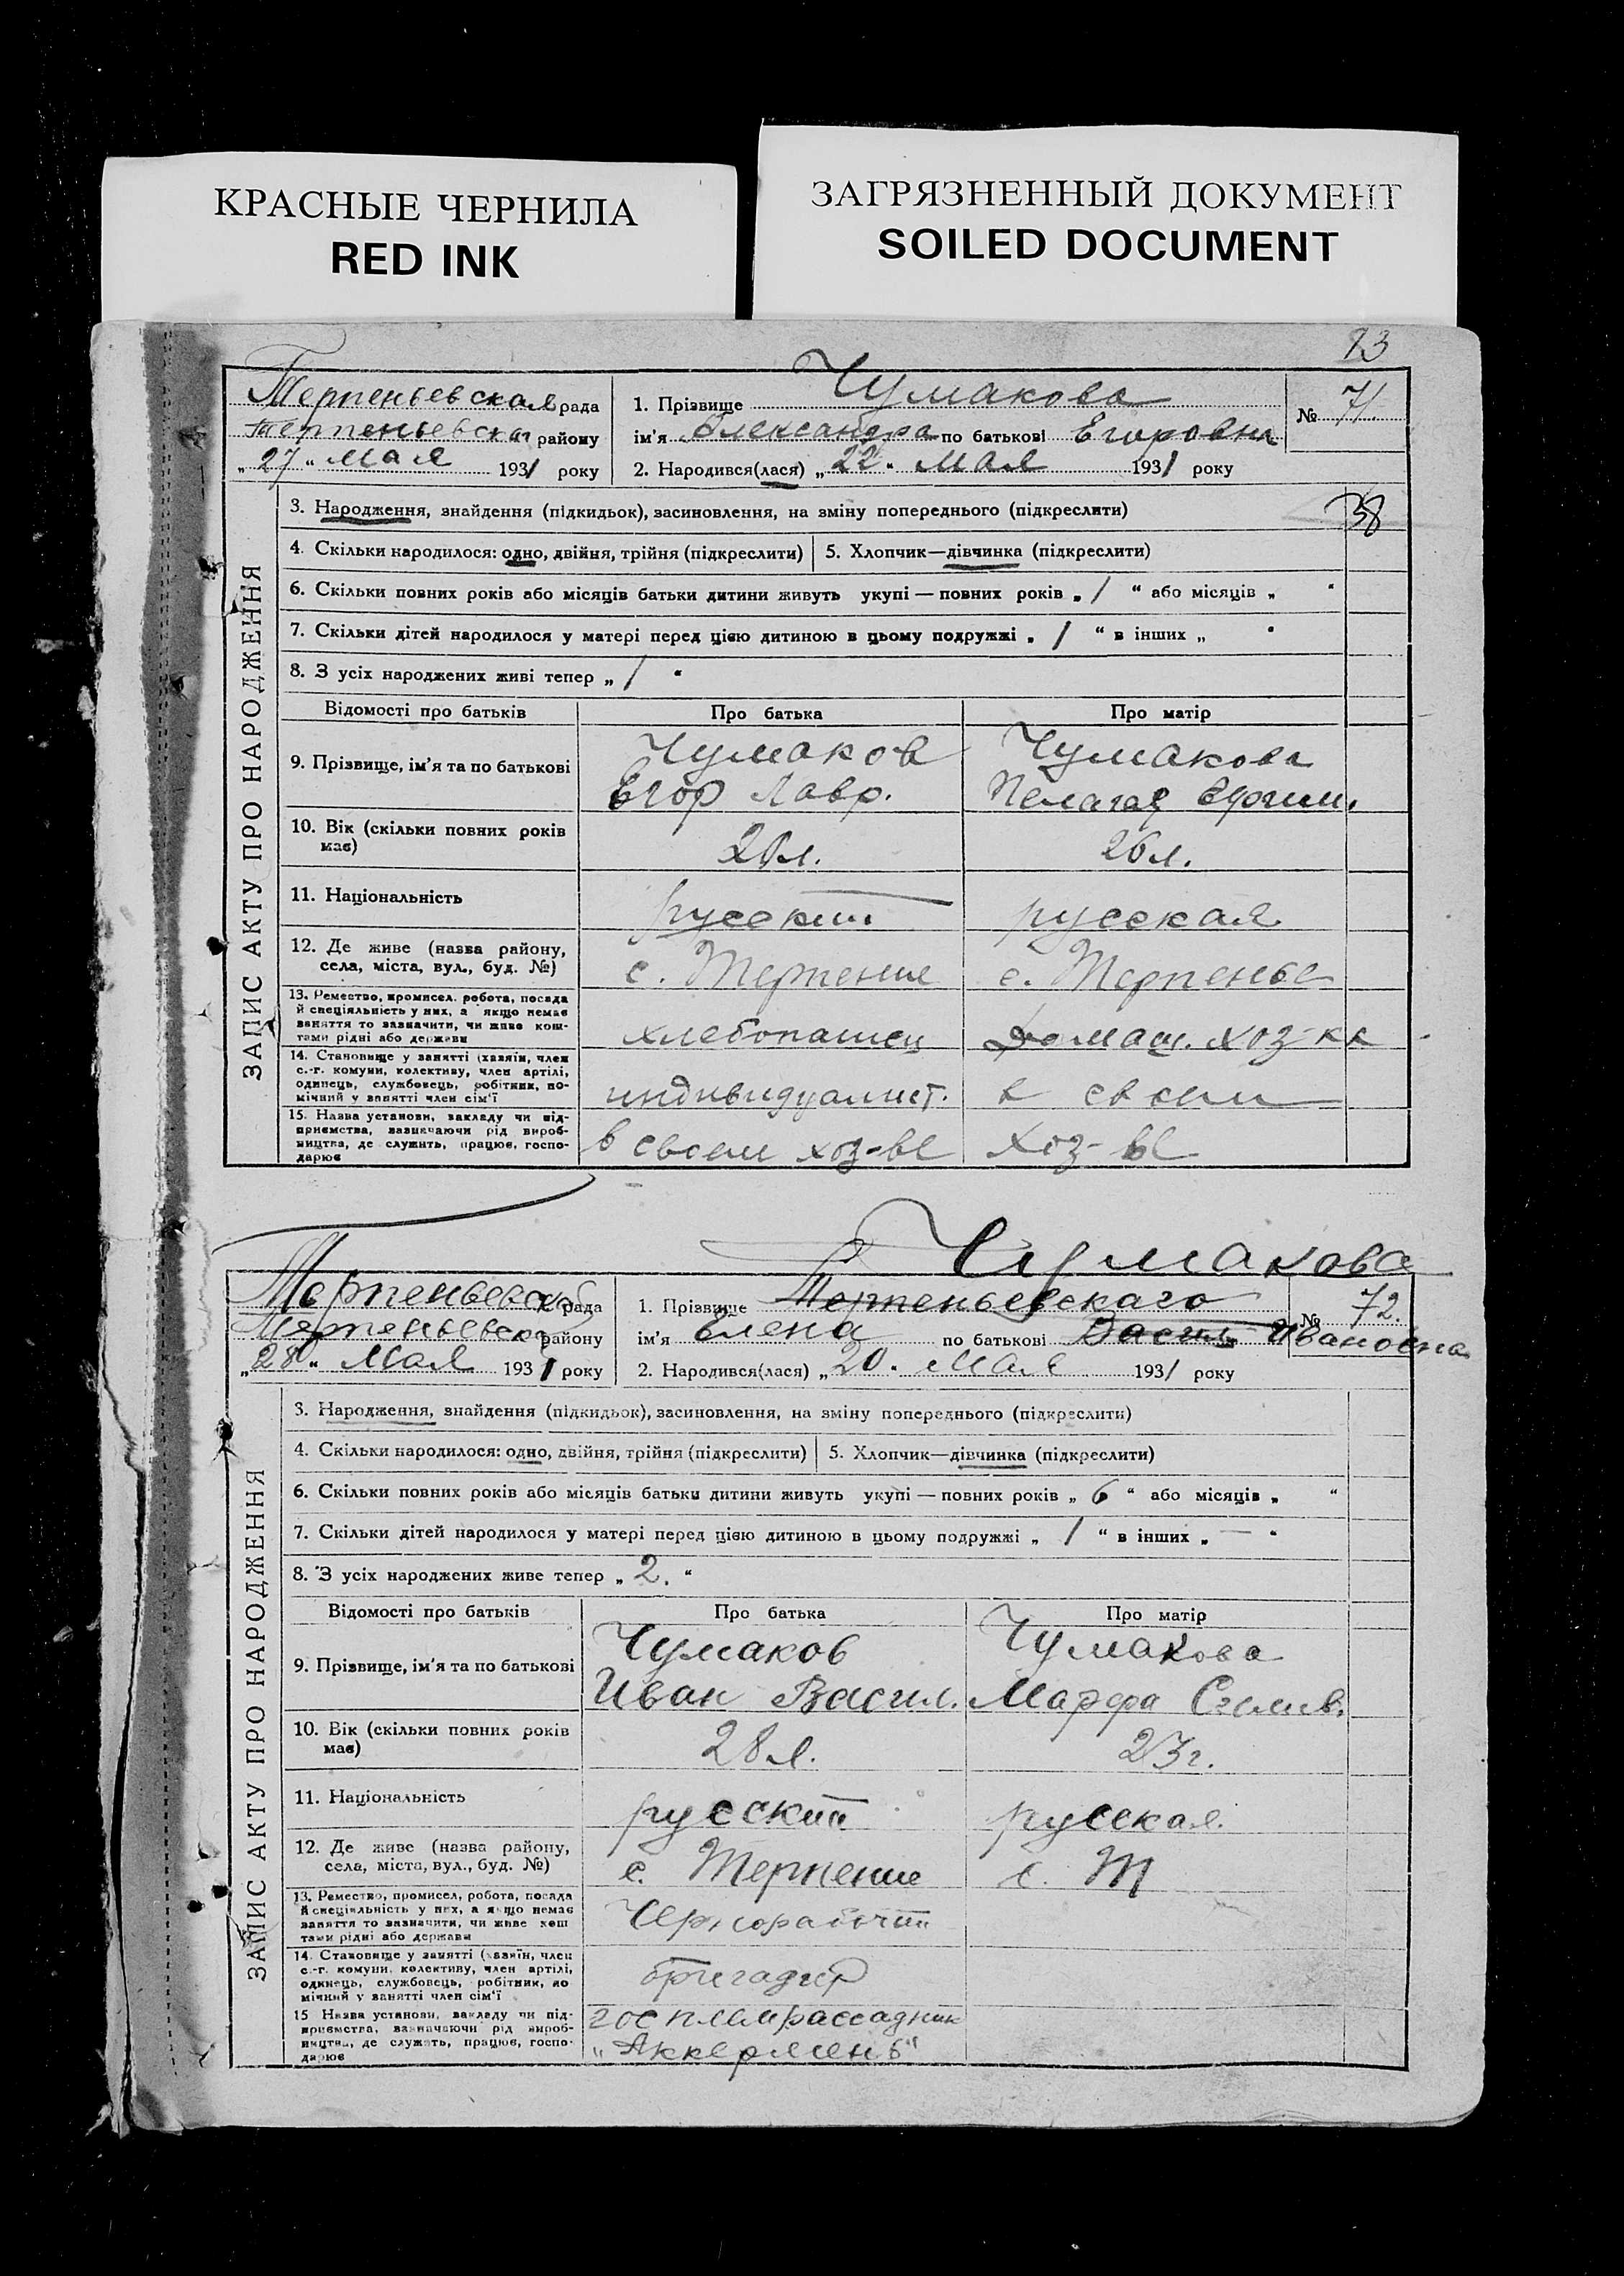 КРАСНЫЕ ЧЕРНИЛА
RED INK
ЗАГРЯЗНЕННЫЙ ДОКУМЕНТ
SOILED DOCUMENT
Терпеньевская рада
Терпеньевская району
„27“ мая 1931 року
1. Прізвище Чумакова
ім'я Александра по батькові Егоровна
2. Народився(лася) „22“ мая 1931 року
№ 71.
ЗАПИС АКТУ ПРО НАРОДЖЕННЯ
3. Народження, знайдення (підкидьок), засиновлення, на зміну попереднього (підкреслити)
38
4. Скільки народилося: одно, двійня, трійня (підкреслити) 5. Хлопчик—дівчинка (підкреслити)
6. Скільки повних років або місяців батьки дитини живуть укупі — повних років „ 1 “ або місяців „ “
7. Скільки дітей народилося у матері перед цією дитиною в цьому подружжі „ 1 “ в інших „ “
8. З усіх народжених живі тепер „ 1 “
Відомості про батьків Про батька Про матір
9. Прізвище, ім'я та по батькові
Чумаков Чумакова
Егор Лавр. Пелагая
10. Вік (скільки повних років має)
26 л.
11. Національність
русский русская
12. Де живе (назва району, села, міста, вул., буд. №)
с. Терпение с. Терпенье
13. Ремество, промисел, робота, посада
й спеціяльність у них, а якщо немає
заняття то зазначити, чи живе кош-
тами рідні або держави
хлебопашец Домаш. хоз-ка
14. Становище у занятті (хазяїн, член
с.-г. комуни, колективу, член артілі,
одинець, службовець, робітник, по-
мічний у занятті член сім'ї
индивидуалист. в своем
15. Назва установи, закладу чи під-
приємства, зазначаючи рід вироб-
ництва, де служить, працює, госпо-
дарює
в своем хоз-ве хоз-ве
Чумакова
Терпеньевская рада
Терпеньевская району
„28“ Мая 1931 року
1. Прізвище Терпеньевскаго
ім'я Елена по батькові Васил Ивановна
2. Народився(лася) „20“ мая 1931 року
№ 72.
ЗАПИС АКТУ ПРО НАРОДЖЕННЯ
3. Народження, знайдення (підкидьок), засиновлення, на зміну попереднього (підкреслити)
4. Скільки народилося: одно, двійня, трійня (підкреслити) 5. Хлопчик—дівчинка (підкреслити)
6. Скільки повних років або місяців батьки дитини живуть укупі — повних років „ 6 “ або місяців „ “
7. Скільки дітей народилося у матері перед цією дитиною в цьому подружжі „ 1 “ в інших „ — “
8. З усіх народжених живе тепер „ 2. “
Відомості про батьків Про батька Про матір
9. Прізвище, ім'я та по батькові
Чумаков Чумакова
Иван Васил. Марфа
10. Вік (скільки повних років має)
28 л. 23 г.
11. Національність
русский русская.
12. Де живе (назва району, села, міста, вул., буд. №)
с. Терпение с. Т
13. Ремество, промисел, робота, посада
й спеціяльність у них, а якщо немає
заняття то зазначити, чи живе кош
тами рідні або держави
Чернорабочий
14. Становище у занятті (хазяїн, член
с.-г. комуни, колективу, член артілі,
одинець, службовець, робітник, по
мічний у занятті член сім'ї
бригадир
15 Назва установи, закладу чи під-
приємства, зазначаючи рід вироб-
ництва, де служить, працює, госпо-
дарює
госплемрассадник
„Аккермень“